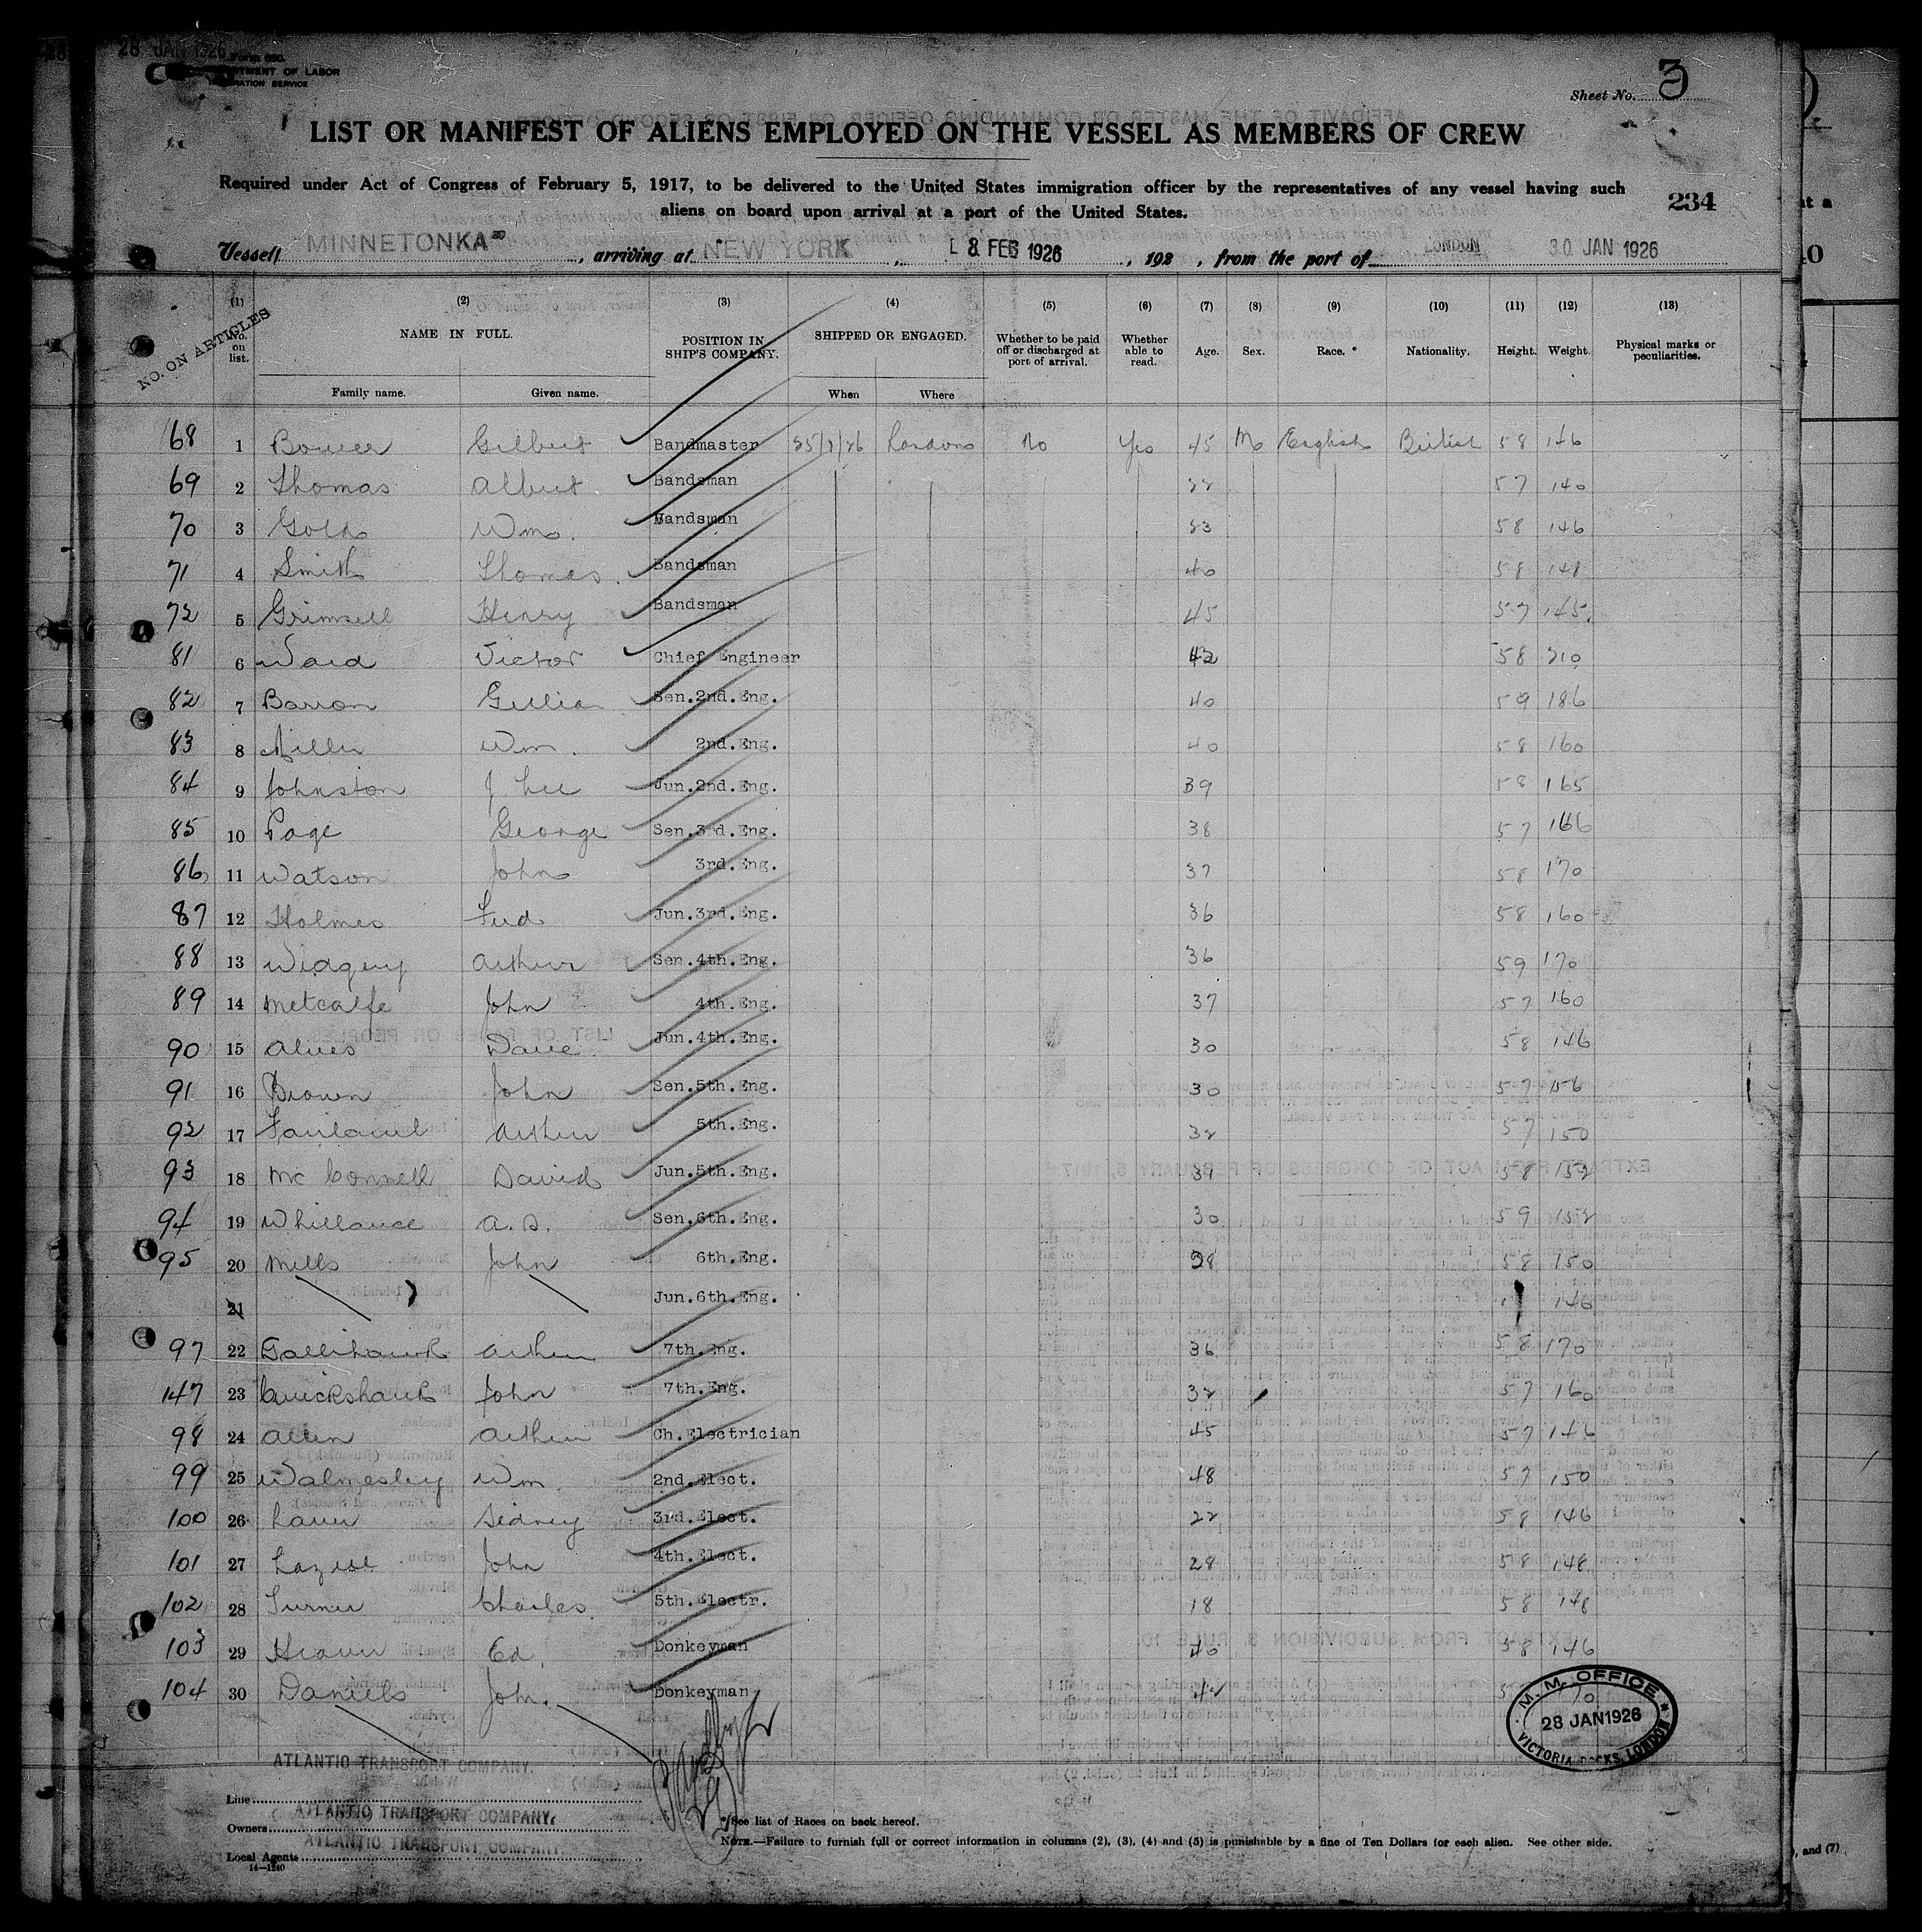 28 JAN 1926
Form 680.
DEPARTMENT OF LABOR
IMMIGRATION SERVICE
Sheet No. 3
LIST OR MANIFEST OF ALIENS EMPLOYED ON THE VESSEL AS MEMBERS OF CREW
Required under Act of Congress of February 5, 1917, to be delivered to the United States immigration officer by the representatives of any vessel having such
aliens on board upon arrival at a port of the United States.
234
Vessel MINNETONKA, arriving at NEW YORK, 8 FEB 1926, 192 , from the port of LONDON 30 JAN 1926
NO. ON ARTICLES
(1) (2) (3) (4) (5) (6) (7) (8) (9) (10) (11) (12) (13)
No. on list. NAME IN FULL. POSITION IN SHIP'S COMPANY. SHIPPED OR ENGAGED. Whether to be paid off or discharged at port of arrival. Whether able to read. Age. Sex. Race. * Nationality. Height. Weight. Physical marks or peculiarities.
Family name. Given name. When Where
68 1 Gilbert Bandmaster 25/1/26 London No Yes 45 M English British 5 8 146
69 2 Thomas Albert Bandsman 5 7 140
70 3 Gold Wm. Bandsman 5 8 146
71 4 Smith Thomas. Bandsman 40 5 8 148
72 5 Grimsell Henry Bandsman 45 5 7 145
81 6 Ward Victor Chief Engineer 42 5 8 210
82 7 Barron Sen.2nd.Eng. 40 5 9 186
83 8 Wm. 2nd.Eng. 40 5 8 160
84 9 Johnston J Lee Jun.2nd.Eng. 39 5 8 165
85 10 Page George Sen.3rd.Eng. 38 5 7 166
86 11 Watson John 3rd.Eng. 37 5 8 170
87 12 Holmes Fred Jun.3rd.Eng. 36 5 8 160
88 13 Widgery Arthur Sen.4th.Eng. 36 5 9 170
89 14 Metcalfe John 4th.Eng. 37 5 7 160
90 15 Alves Dave Jun.4th.Eng. 30 5 8 146
91 16 Brown John Sen.5th.Eng. 30 5 7 156
92 17 Arthur 5th.Eng. 32 5 7 150
93 18 McConnell David Jun.5th.Eng. 31 5 8 152
94 19 Whillance A.S. Sen.6th.Eng. 30 5 9 152
95 20 Mills John 6th.Eng. 28 5 8 150
21 Jun.6th.Eng. 146
97 22 Gallihawk Arthur 7th.Eng. 36 5 8 170
147 23 Cruickshank John 7th.Eng. 32 5 7 160
98 24 Allen Arthur Ch.Electrician 45 5 7 146
99 25 Walmesley Wm. 2nd.Elect. 48 5 7 150
100 26 Sidney 3rd.Elect. 22 5 8 146
101 27 John 4th.Elect. 28 5 8 148
102 28 Turner Charles 5th.Electr. 18 5 8 148
103 29 Ed. Donkeyman 40 5 8 146
104 30 Daniels John. Donkeyman
M. M. OFFICE
28 JAN 1926
VICTORIA DOCKS, LONDON
ATLANTIC TRANSPORT COMPANY.
Line
ATLANTIC TRANSPORT COMPANY,
Owners
ATLANTIC TRANSPORT COMPANY
Local Agents
14—1240
* See list of Races on back hereof.
NOTE.—Failure to furnish full or correct information in columns (2), (3), (4) and (5) is punishable by a fine of Ten Dollars for each alien. See other side.
, and (7)